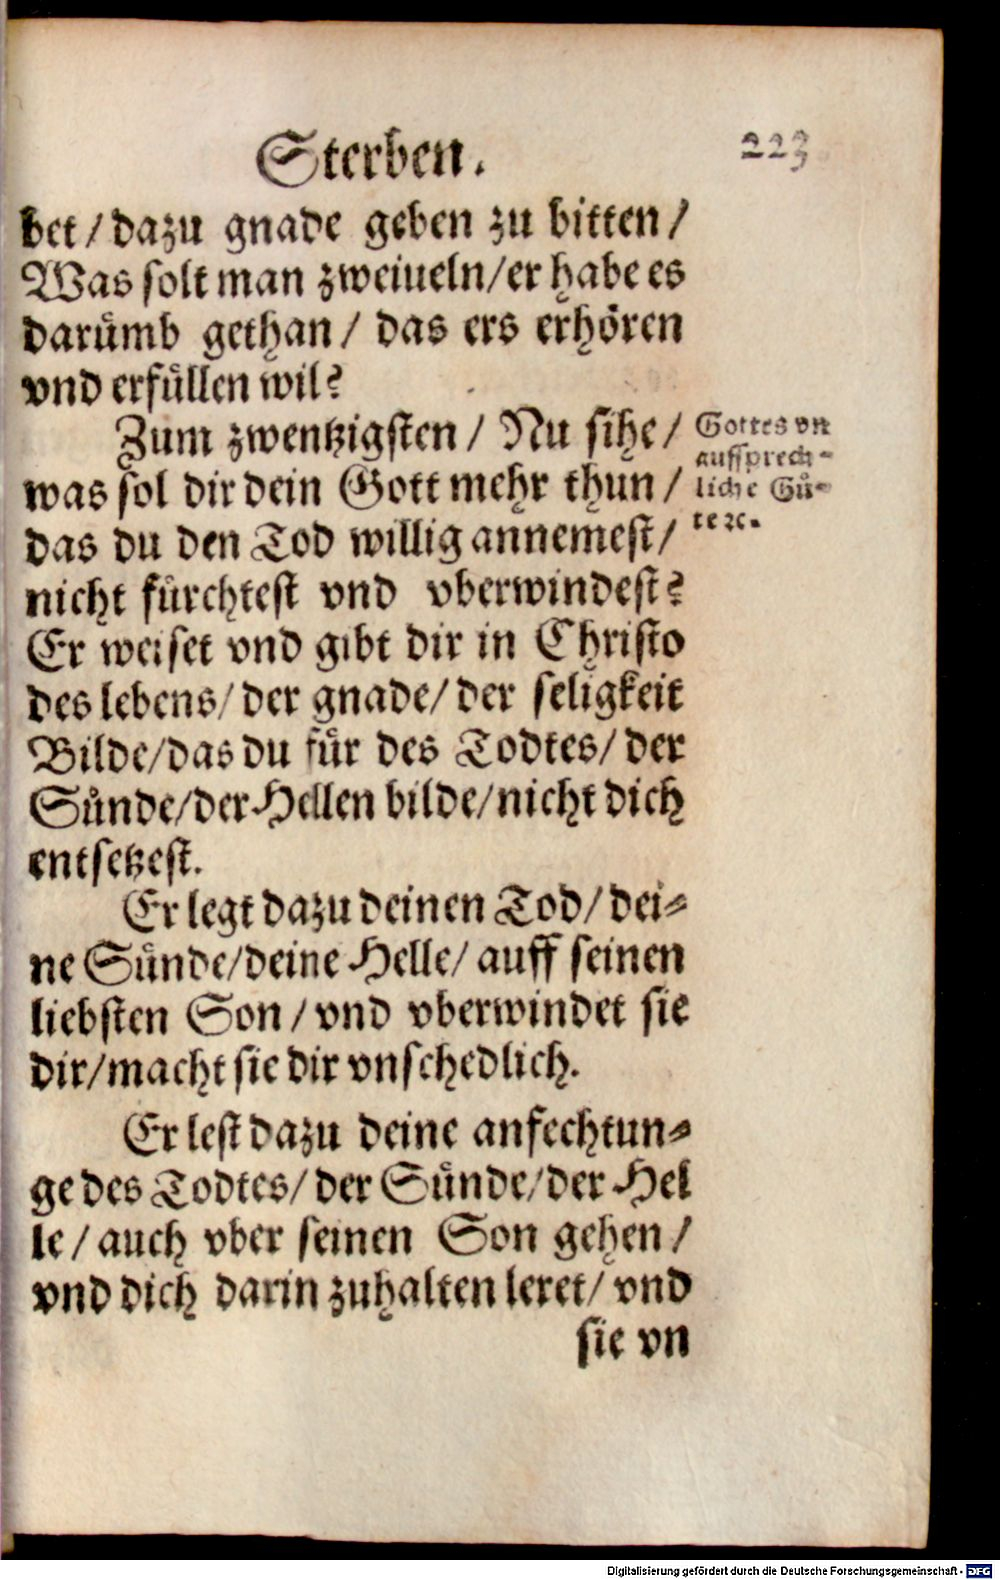 Sterben. 223
bet / dazu gnade geben zu bitten /
Was solt man zweiueln / er habe es
darümb gethan / das ers erhören
vnd erfüllen wil?
Zum zwentzigsten / Nu sihe /
was sol dir dein Gott mehr thun /
das du den Tod willig annemest /
nicht fürchtest vnd vberwindest?
Er weiset vnd gibt dir in Christo
des lebens / der gnade / der seligkeit
Bilde / das du für des Todtes / der
Sünde / der Hellen bilde / nicht dich
entsetzest.
Er legt dazu deinen Tod / dei⸗
ne Sünde / deine Helle / auff seinen
liebsten Son / vnd vberwindet sie
dir / macht sie dir vnschedlich.
Er lest dazu deine anfechtun⸗
ge des Todtes / der Sünde / der Hel
le / auch vber seinen Son gehen /
vnd dich darin zuhalten leret / vnd
sie vn
Gottes vn
aussprech⸗
liche Gü⸗
te ꝛc.
Digitalisierung gefördert durch die Deutsche Forschungsgemeinschaft - DFG